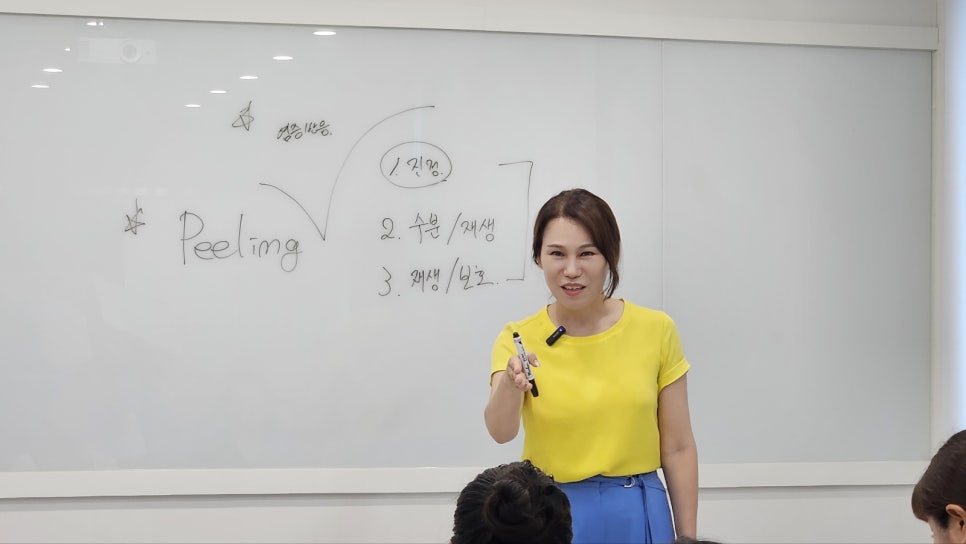 ☆ 염증반응.
☆ Peeling
1. 진정.
2. 수분/재생
3. 재생/보호.